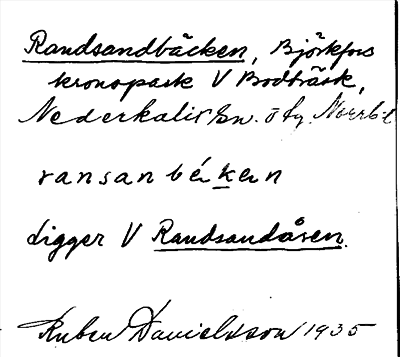 Randsandbäcken, Björkfors
kronopark V Bodträsk,
Nederkalix sn. o tg. Norrb. l
ransanbéken
ligger V Randsandåsen.
Ruben Danielsson 1935